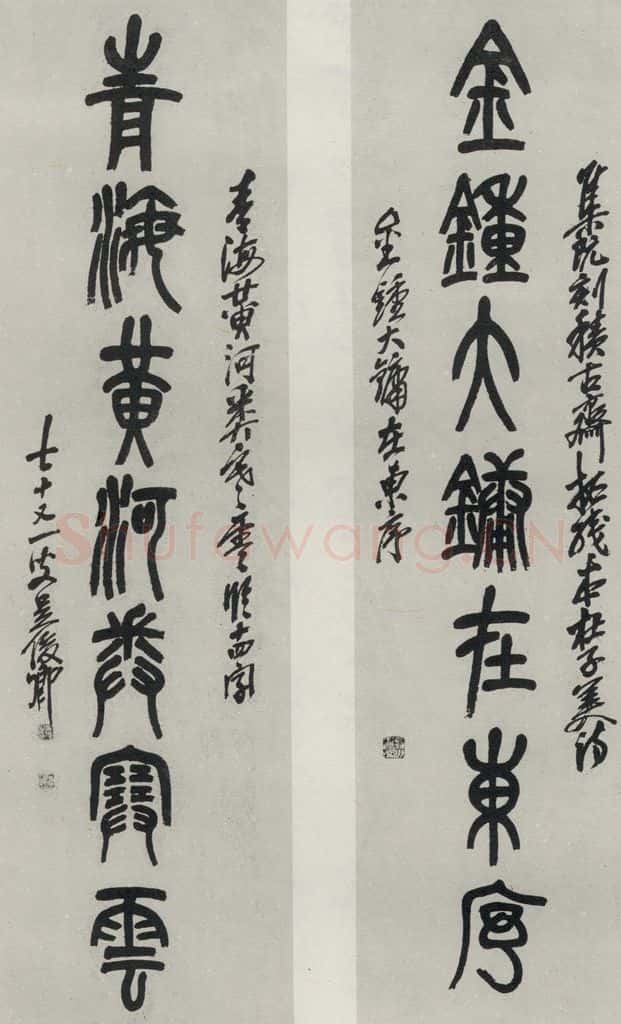 集阮刻積古齋拓殘本杜子美詩
金鐘大鏞在東序
金鐘大鏞在東序
青海黃河卷塞雲
青海黃河卷塞雲 十四字
七十又一叟吳俊卿
Shufawang.CN